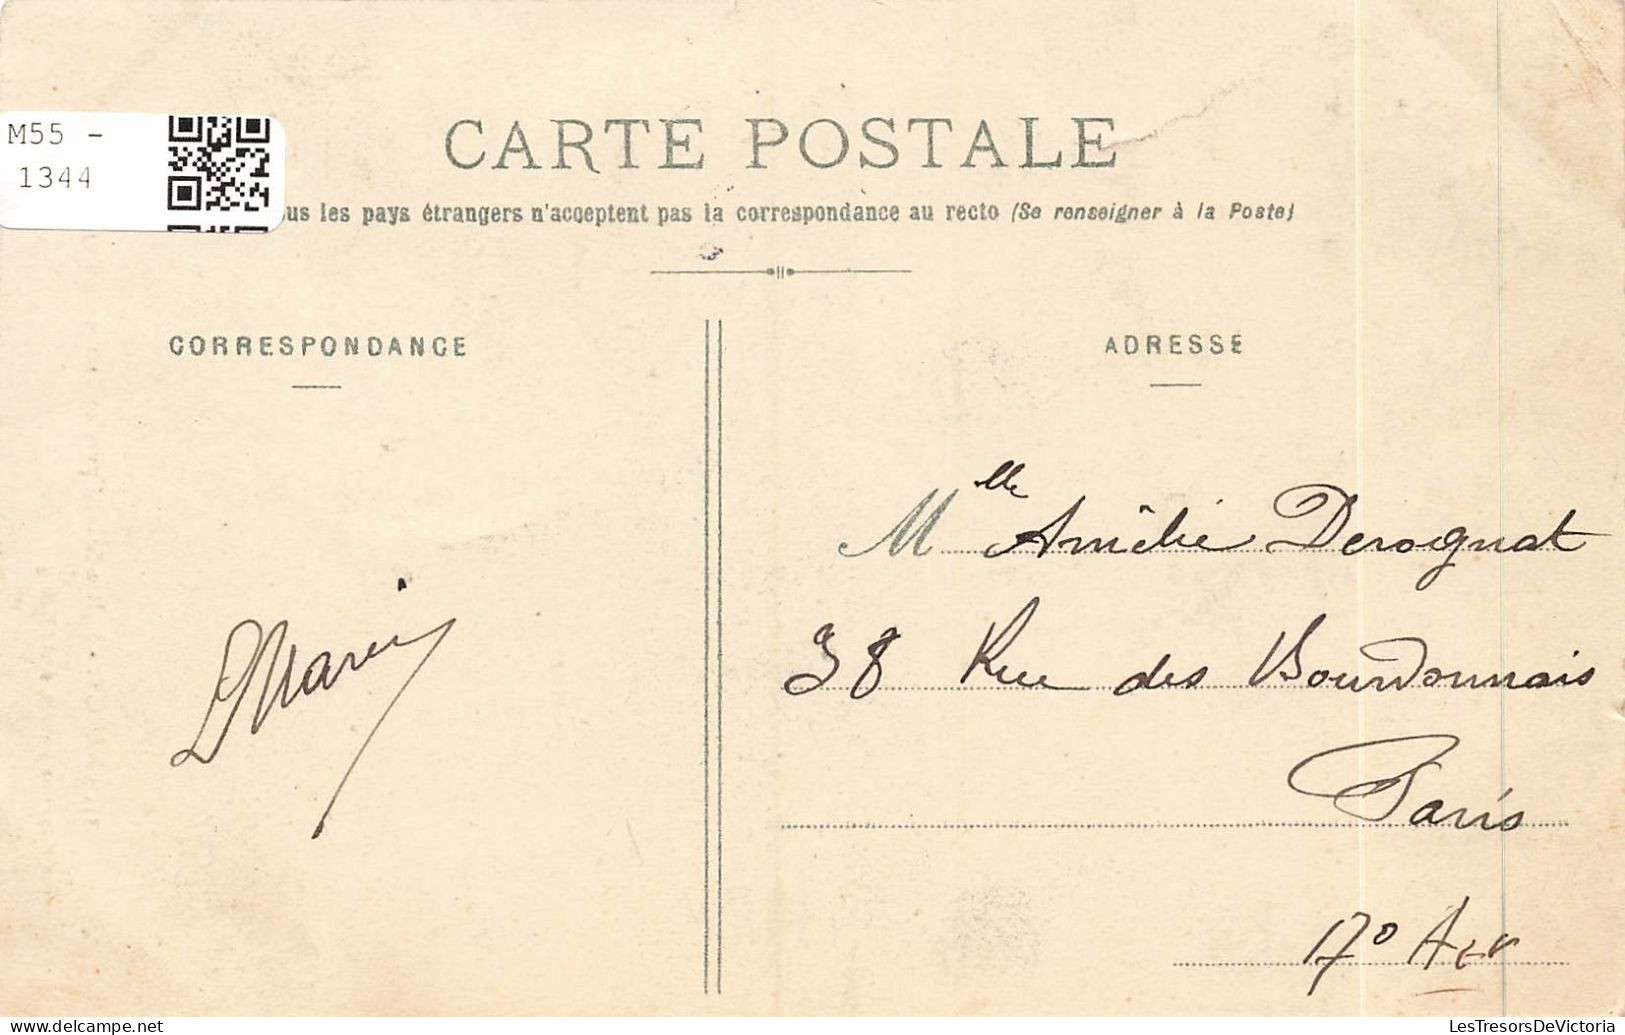 M55 -
1344
CARTE POSTALE
us les pays étrangers n'acceptent pas la correspondance au recto (Se renseigner à la Poste)
CORRESPONDANCE
ADRESSE
Mlle Amélie Derognat
38 Rue des Bourdonnais
Paris
17º Arr
LesTresorsDeVictoria
www.delcampe.net